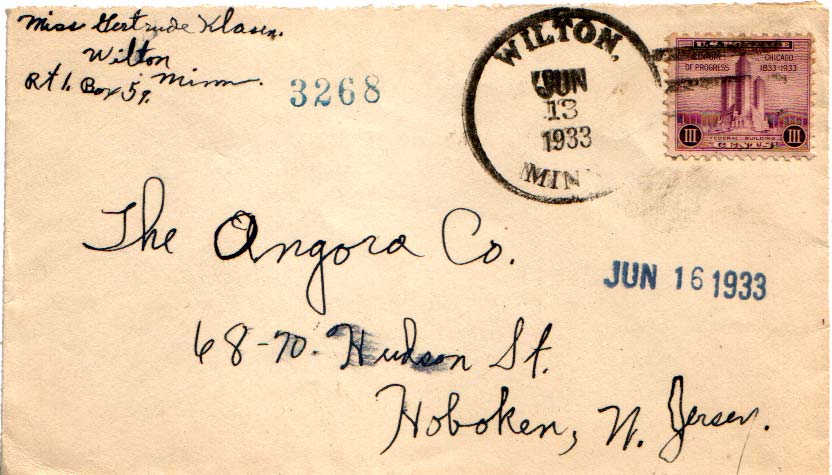 Miss Gertrude Klasen.
Wilton
Rt 1. Box 59. Minn.
3268
WILTON,
JUN
13
1933
MINN
CENTURY OF PROGRESS
CHICAGO 1833-1933
III
III
FEDERAL BUILDING
CENTS
The Angora Co.
JUN 16 1933
68-70. Hudson St.
Hoboken, N. Jersey.